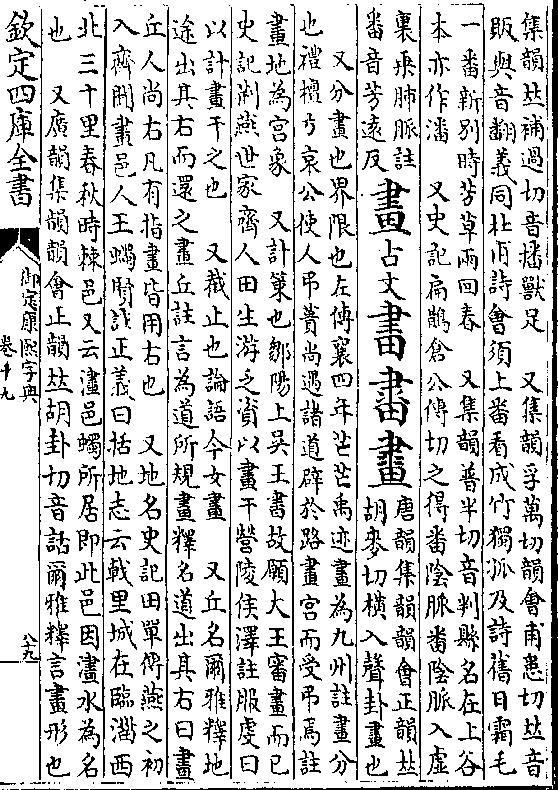 集韻𠀤補過切音播獸足　又集韻孚萬切韻會甫患切𠀤音
販與音翻義同杜甫詩會須上番看成竹獨孤及詩舊日霜毛
一番新別時芳草兩回春　又集韻普半切音判縣名在上谷
本亦作潘　又史記扁鵲倉公傳切之得番陰脈番陰脈入虛
裏乘肺脈註
番音芳遠反
畫
古文
畵畫畫
唐韻集韻韻會正韻𠀤
胡麥切橫入聲卦畫也
又分畫也界限也左傳襄四年茫茫禹迹畫為九州註畫分
也禮檀弓哀公使人弔蕢尚遇諸道辟於路畫宮而受弔焉註
畫地為宮象　又計策也鄒陽上吳王書故願大王審畫而已
史記荆燕世家齊人田生游乏資以畫干營陵侯澤註服虔曰
以計畫干之也　又截止也論語今女畫　又丘名爾雅釋地
途出其右而還之畫丘註言為道所規畫釋名道出其右曰畫
丘人尚右凡有指畫皆用右也　又地名史記田單傳燕之初
入齊聞畫邑人王蠋賢註正義曰括地志云戟里城在臨淄西
北三十里春秋時棘邑又云澅邑蠋所居即此邑因澅水為名
也　又廣韻集韻韻會正韻𠀤胡卦切音話爾雅釋言畫形也
欽定四庫全書
御定康熙字典
卷十九
八九